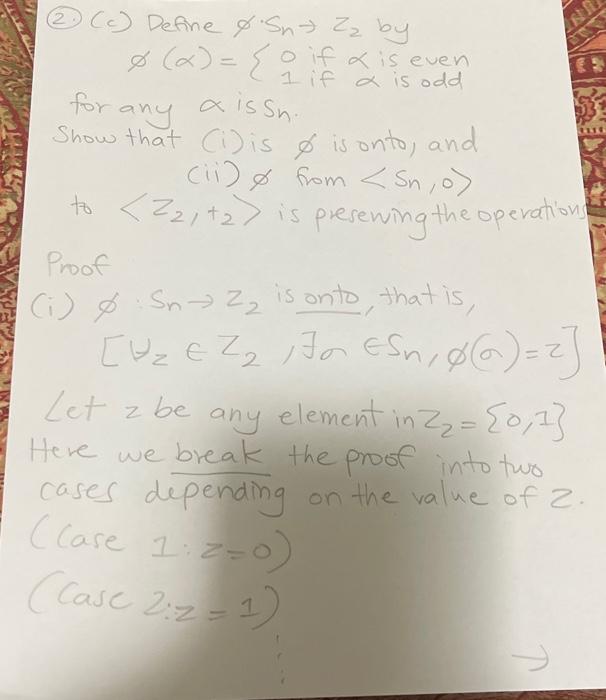 ② (c) Define ϕ: Sn → Z₂ by
ϕ(α) = { 0 if α is even
1 if α is odd
for any α is Sn.
Show that (i) is ϕ is onto, and
(ii) ϕ from <Sn, o>
to <Z₂, +₂> is preserving the operations
Proof
(i) ϕ: Sn → Z₂ is onto, that is,
[∀z ∈ Z₂, ∃σ ∈ Sn, ϕ(σ) = z]
Let z be any element in Z₂ = {0,1}
Here we break the proof into two
cases depending on the value of z.
(Case 1: z=0)
(Case 2: z = 1)
⋮
→